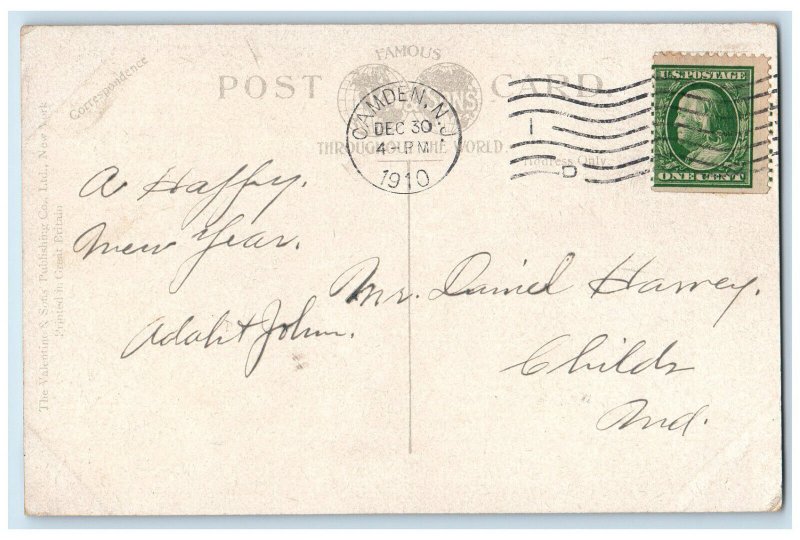 FAMOUS
POST CARD
THROUGHOUT THE WORLD
Correspondence
Address Only
CAMDEN, N.J.
DEC 30
4-PM
1910
1
D
U.S. POSTAGE
ONE CENT
The Valentine & Sons' Publishing Co., Ltd., New York
Printed in Great Britain
A Happy.
New Year.
Adah & John.
Mr. Daniel Harvey.
Childs
Md.